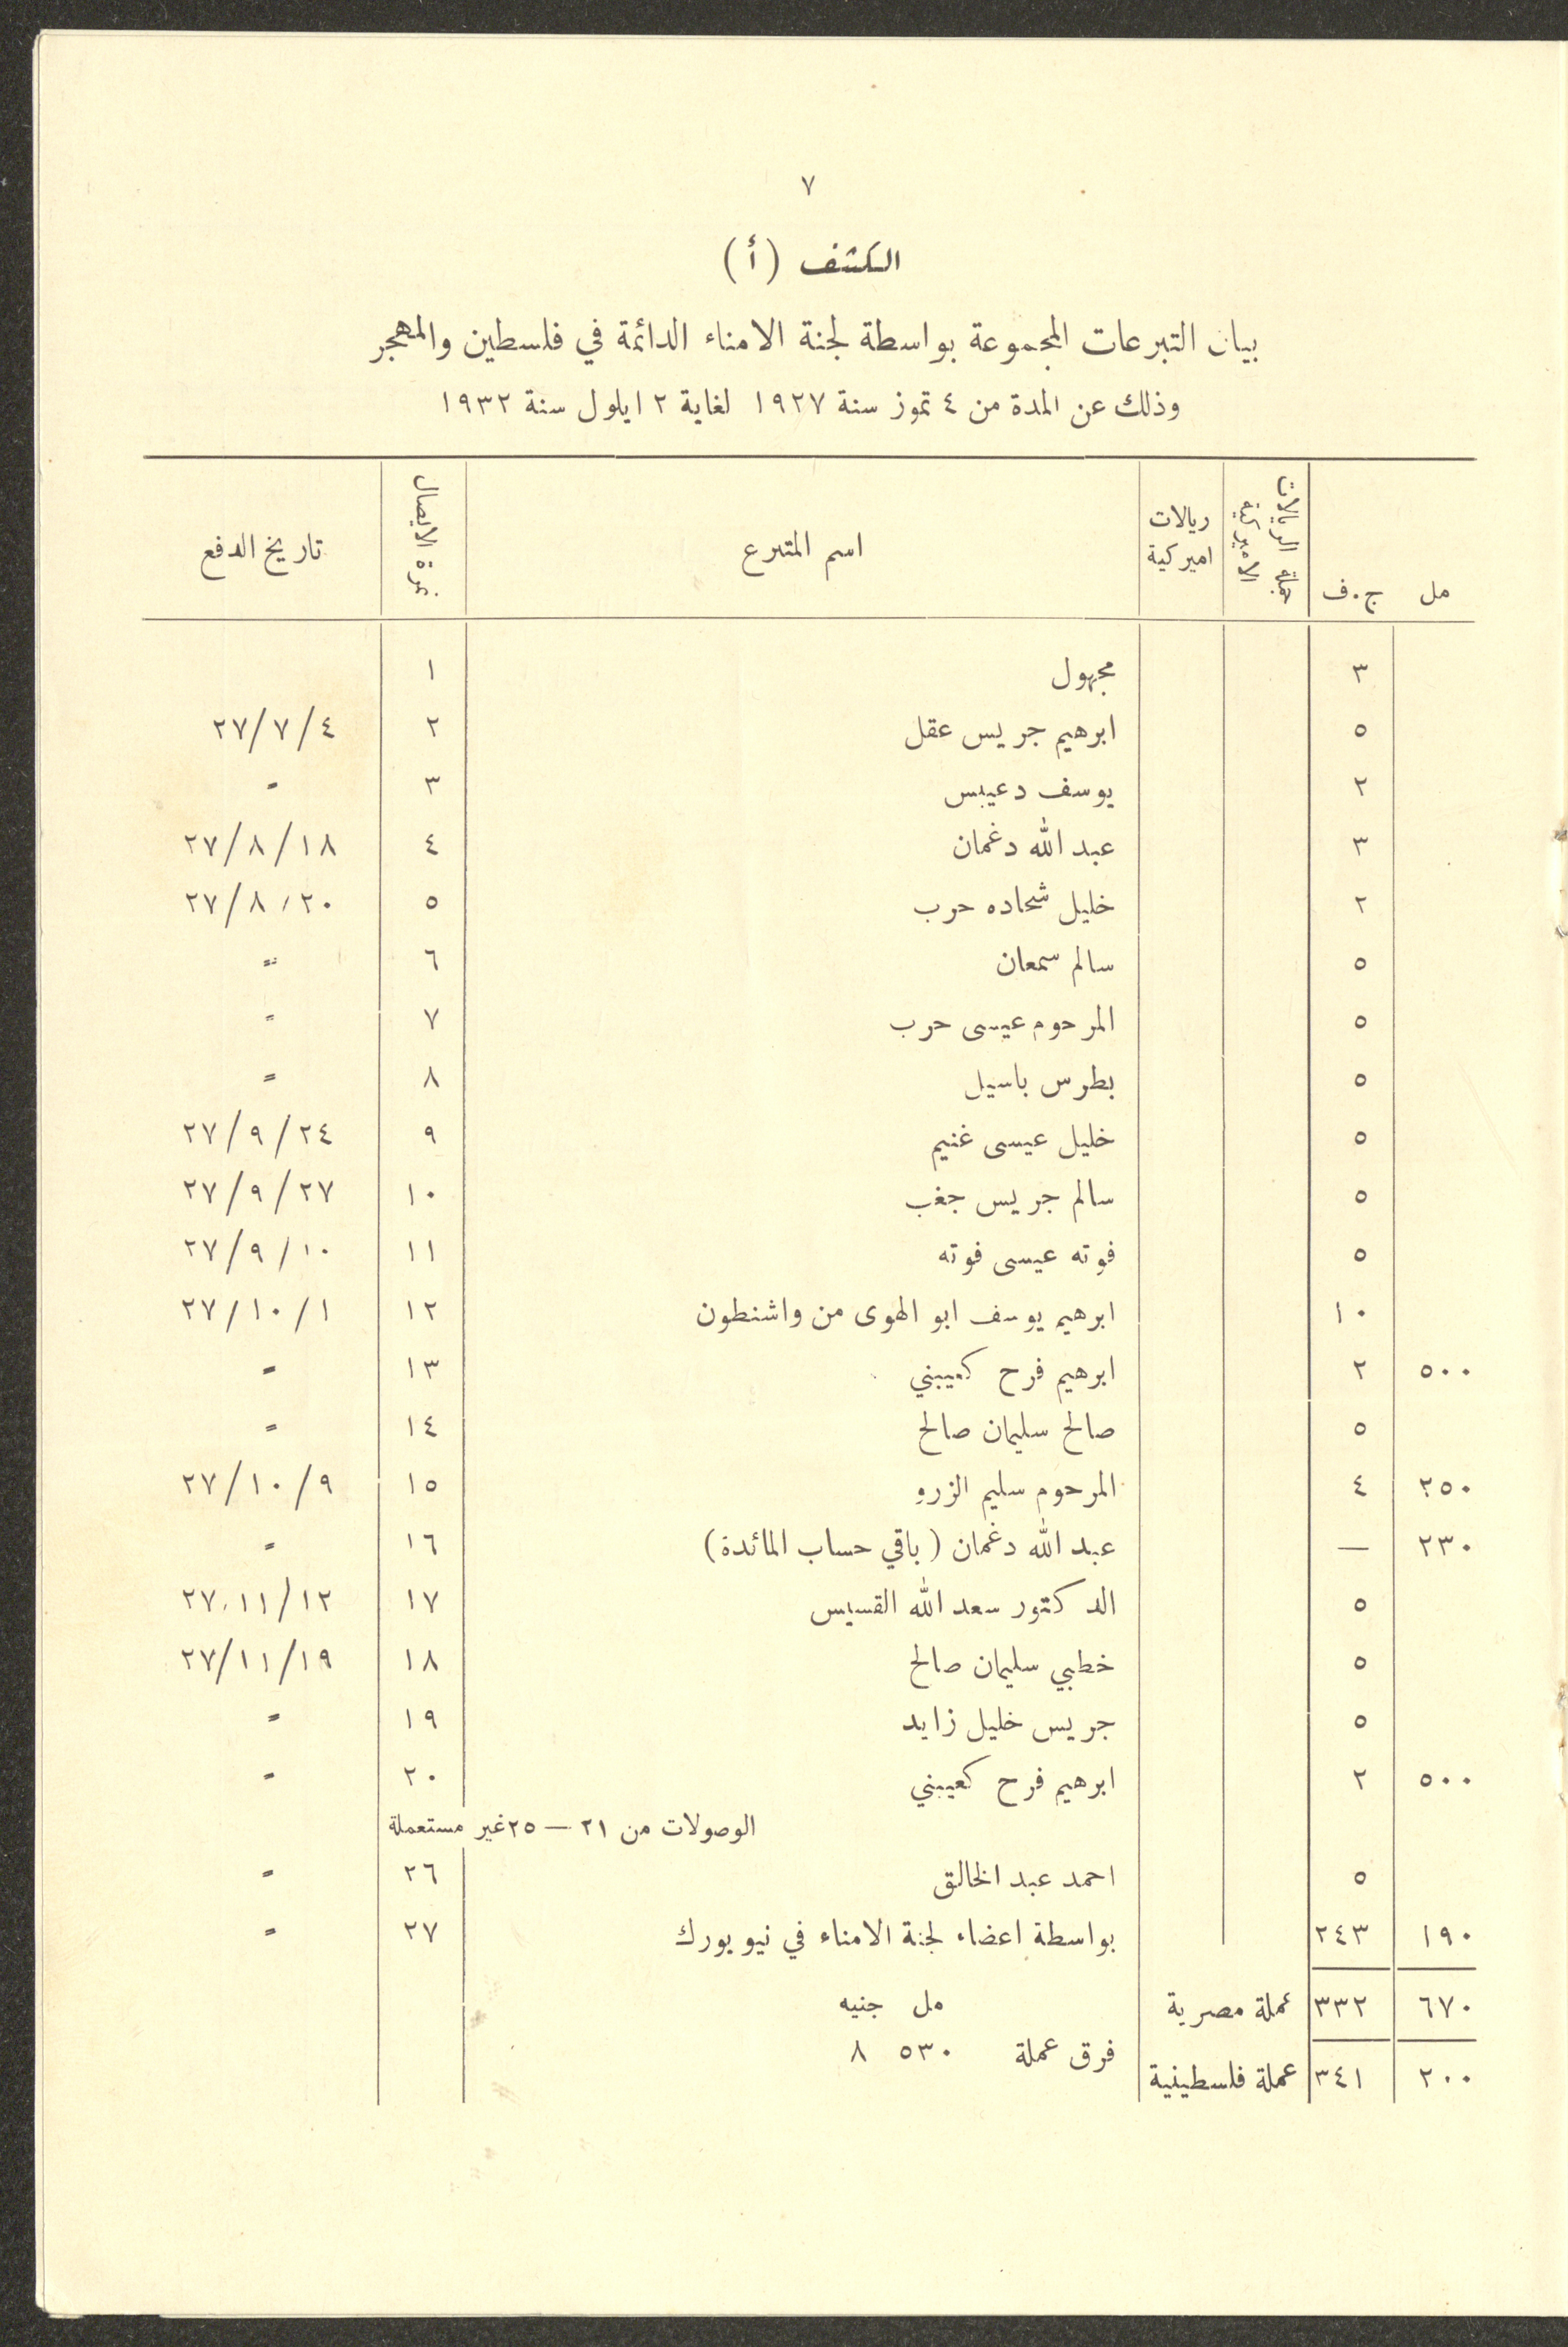 ٧
الكشف (أ)
بيان التبرعات المجموعة بواسطة لجنة الامناء الدائمة في فلسطين والمهجر
وذلك عن المدة من ٤ تموز سنة ١٩٢٧ لغاية ٢ ايلول سنة ١٩٣٢
مل ج.ف الريالات الاميركية ريالات اميركية اسم المتبرع نمرة الايصال تاريخ الدفع
٣ مجهول ١
٥ ابرهيم جريس عقل ٢ ٢٧/٧/٤
٢ يوسف دعيبس ٣ =
٣ عبد الله دغمان ٤ ٢٧/٨/١٨
٢ خليل شحاده حرب ٥ ٢٧/٨/٢٠
٥ سالم سمعان ٦ =
٥ المرحوم عيسى حرب ٧ =
٥ بطرس باسيل ٨ =
٥ خليل عيسى غنيم ٩ ٢٧/٩/٢٤
٥ سالم جريس جغب ١٠ ٢٧/٩/٢٧
٥ فوته عيسى فوته ١١ ٢٧/٩/١٠
١٠ ابرهيم يوسف ابو الهوى من واشنطون ١٢ ٢٧/١٠/١
٥٠٠ ٢ ابرهيم فرح كعيبني ١٣ =
٥ صالح سليمان صالح ١٤ =
٢٥٠ ٤ المرحوم سليم الزرو ١٥ ٢٧/١٠/٩
٢٣٠ — عبد الله دغمان (باقي حساب المائدة) ١٦ =
٥ الدكتور سعد الله القسيس ١٧ ٢٧/١١/١٢
٥ خطبي سليمان صالح ١٨ ٢٧/١١/١٩
٥ جريس خليل زايد ١٩ =
٥٠٠ ٢ ابرهيم فرح كعيبني ٢٠ =
الوصولات من ٢١ — ٢٥ غير مستعملة
٥ احمد عبد الخالق ٢٦ =
١٩٠ ٢٤٣ بواسطة اعضاء لجنة الامناء في نيو يورك ٢٧ =
٦٧٠ ٣٣٢ عملة مصرية مل جنيه
فرق عملة ٥٣٠ ٨
٢٠٠ ٣٤١ عملة فلسطينية